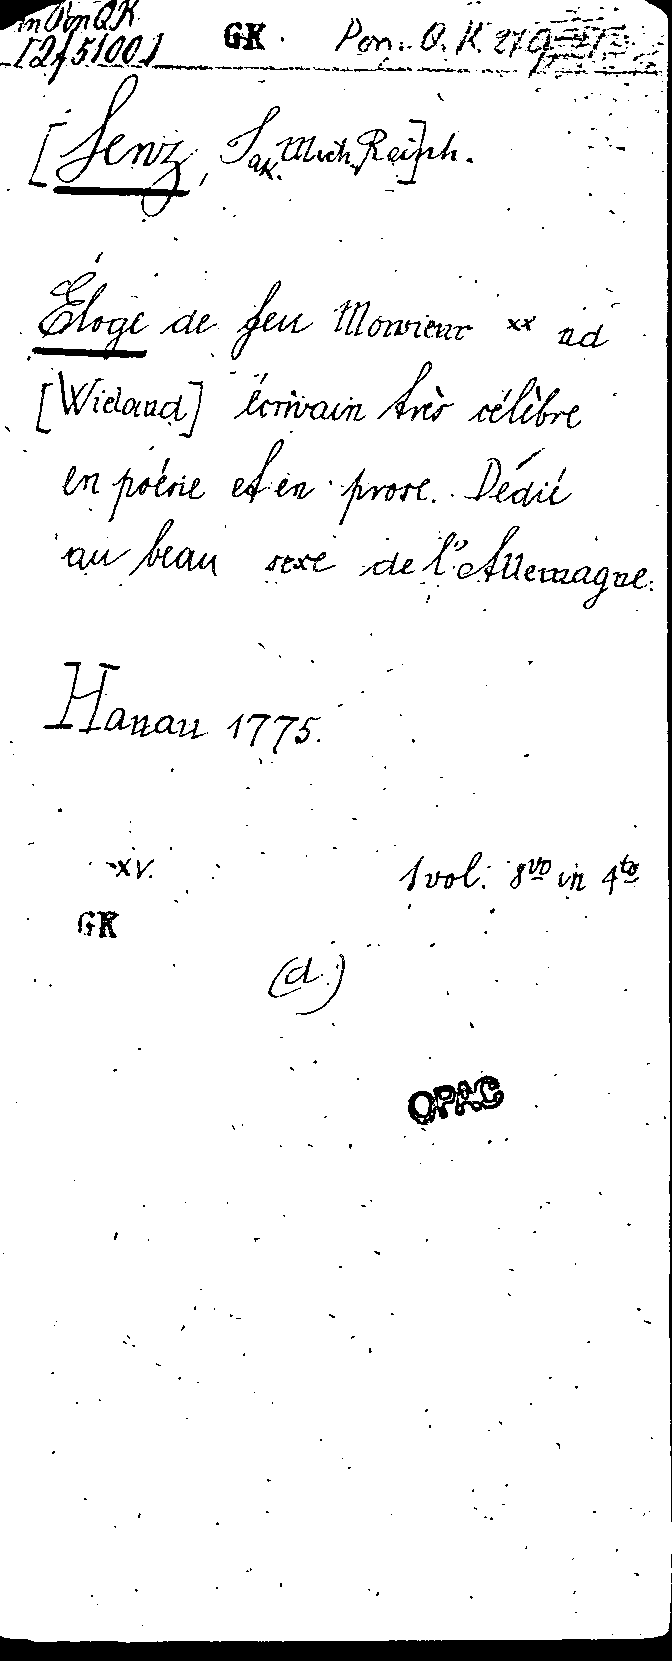 in Pon QK
I2/51001
GK. Pon. Q. K. 219
[Lenz, Jak. Mich. Reinh.]
Éloge de feu Monsieur xx nd
[Wieland] écrivain très célèbre
en poésie et en prose. Dédié
au beau sexe de l'Allemagne.
Hanau 1775.
XV. 1 vol. 8vo in 4to
GK
(d.)
OPAC